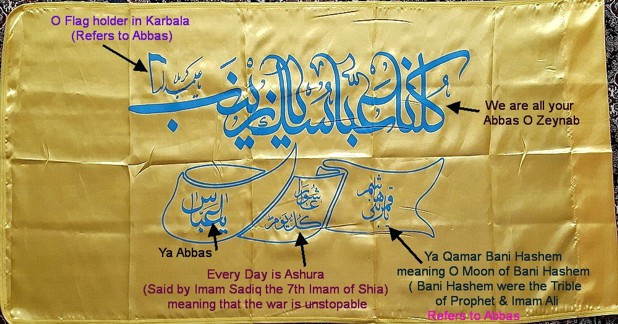 O Flag holder in Karbala
(Refers to Abbas)
كلنا عباسك يا زينب
We are all your
Abbas O Zeynab
يا عباس
كل يوم
عاشورا
يا قمر بني هاشم
Ya Abbas
Every Day is Ashura
(Said by Imam Sadiq the 7th Imam of Shia)
meaning that the war is unstopable
Ya Qamar Bani Hashem
meaning O Moon of Bani Hashem
( Bani Hashem were the Trible
of Prophet & Imam Ali
Refers to Abbas